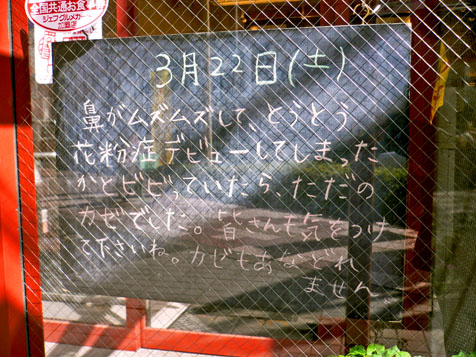 全国共通お食事
ジェフグルメカード
3月22日(土)
鼻がムズムズして、とうとう
花粉症デビューしてしまった
かとビビっていたら、ただの
カゼでした。皆さんも気をつけ
て下さいね。カゼもあなどれ
ません